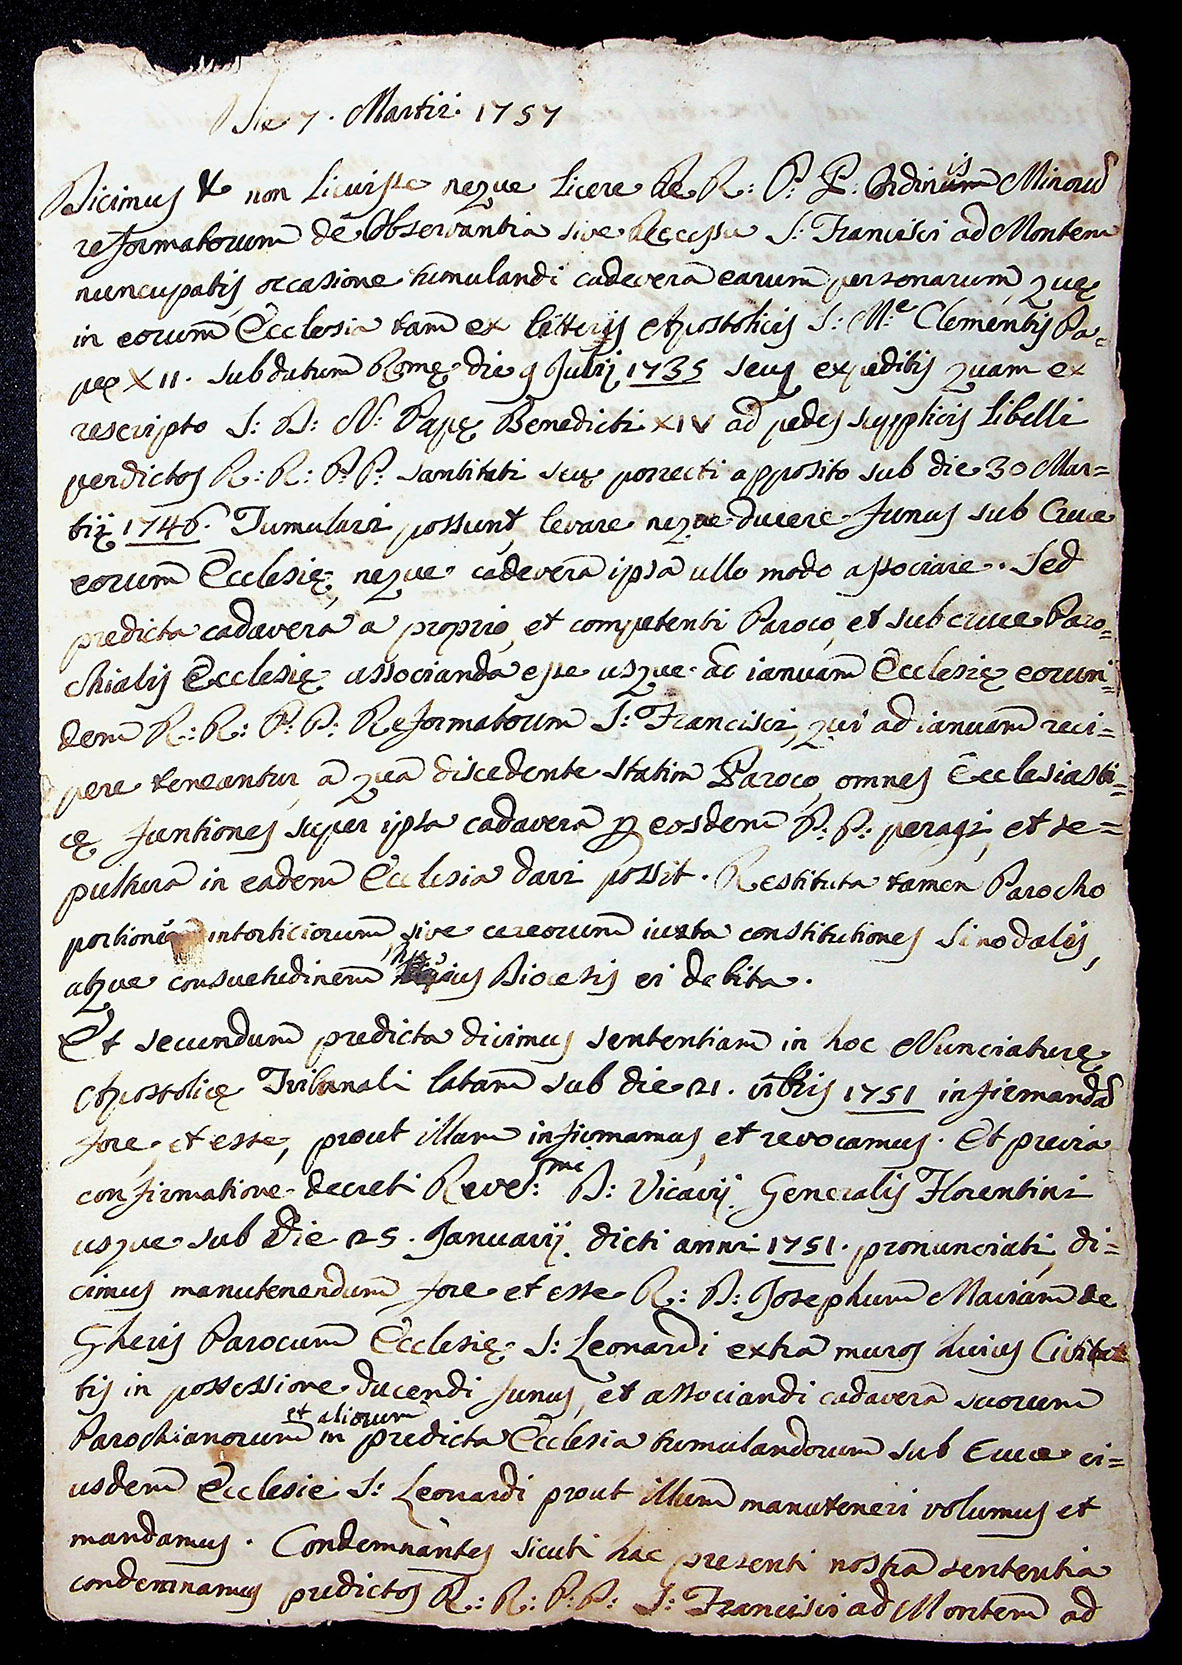 Die 7. Martii 1757
Dicimus & non licuisse neque licere RR. R: P: P: Ordinis Minorum
reformatorum de Observantia sive Recessu S: Francisci ad Montem
nuncupatis occasione tumulandi cadavera earum personarum, quę
in eorum Ecclesia tam ex litteris Apostolicis S: M:e Clementis Pa=
pę XII. sub datum Romę die 9 Julij 1735 seu expeditis quam ex
rescripto S: D: N: Papę Benedicti XIV ad pedes supplicis libelli
per dictos R: R: P: P: santitati suę porrecti apposito sub die 30 Mar=
tij 1746. Tumulari possunt, levare neque ducere funus sub Cruce
eorum Ecclesię, neque cadavera ipsa ullo modo associare. Sed
predicta cadavera a proprio, et competenti Paroco, et sub cruce Paro=
chialis Ecclesię associanda esse usque ad ianuam Ecclesię eorun=
dem R: R: P: P: Reformatorum S: Francisci, qui ad ianuam reci=
pere teneantur, a qua discedente statim Paroco, omnes Ecclesiasti=
cę funtiones super ipsa cadavera per eosdem P: P: peragi, et se=
pultura in eadem Ecclesia dari possit. Restituta tamen Parocho
portione intorticiorum sive cereorum iuxta constitutiones Sinodales,
atque consuetudinem huius Diocesis ei debita.
Et secundum predicta dicimus sententiam in hoc Nunciaturę
Apostolicę Tribunali latam sub die 21. 1751 infirmandam
fore, et esse, prout illam infirmamus, et revocamus. Et previa
confirmatione decreti Reve:mi D: Vicarij Generalis Florentini
usque sub die 25. Januarij dicti anni 1751. pronunciati, di=
cimus manutenendum fore et esse R: D: Josephum Mariam de
Gheris Parocum Ecclesię S: Leonardi extra muros huius Civita
tis in possessione ducendi funus, et associandi cadavera suorum
Parochianorum et aliorum in predicta Ecclesia tumulandorum sub Cruce ei=
usdem Ecclesie S: Leonardi prout illum manuteneri volumus et
mandamus. Condemnantes sicuti hac presenti nostra sententia
condemnamus predictos R: R: P: P: S: Francisci ad Montem ad